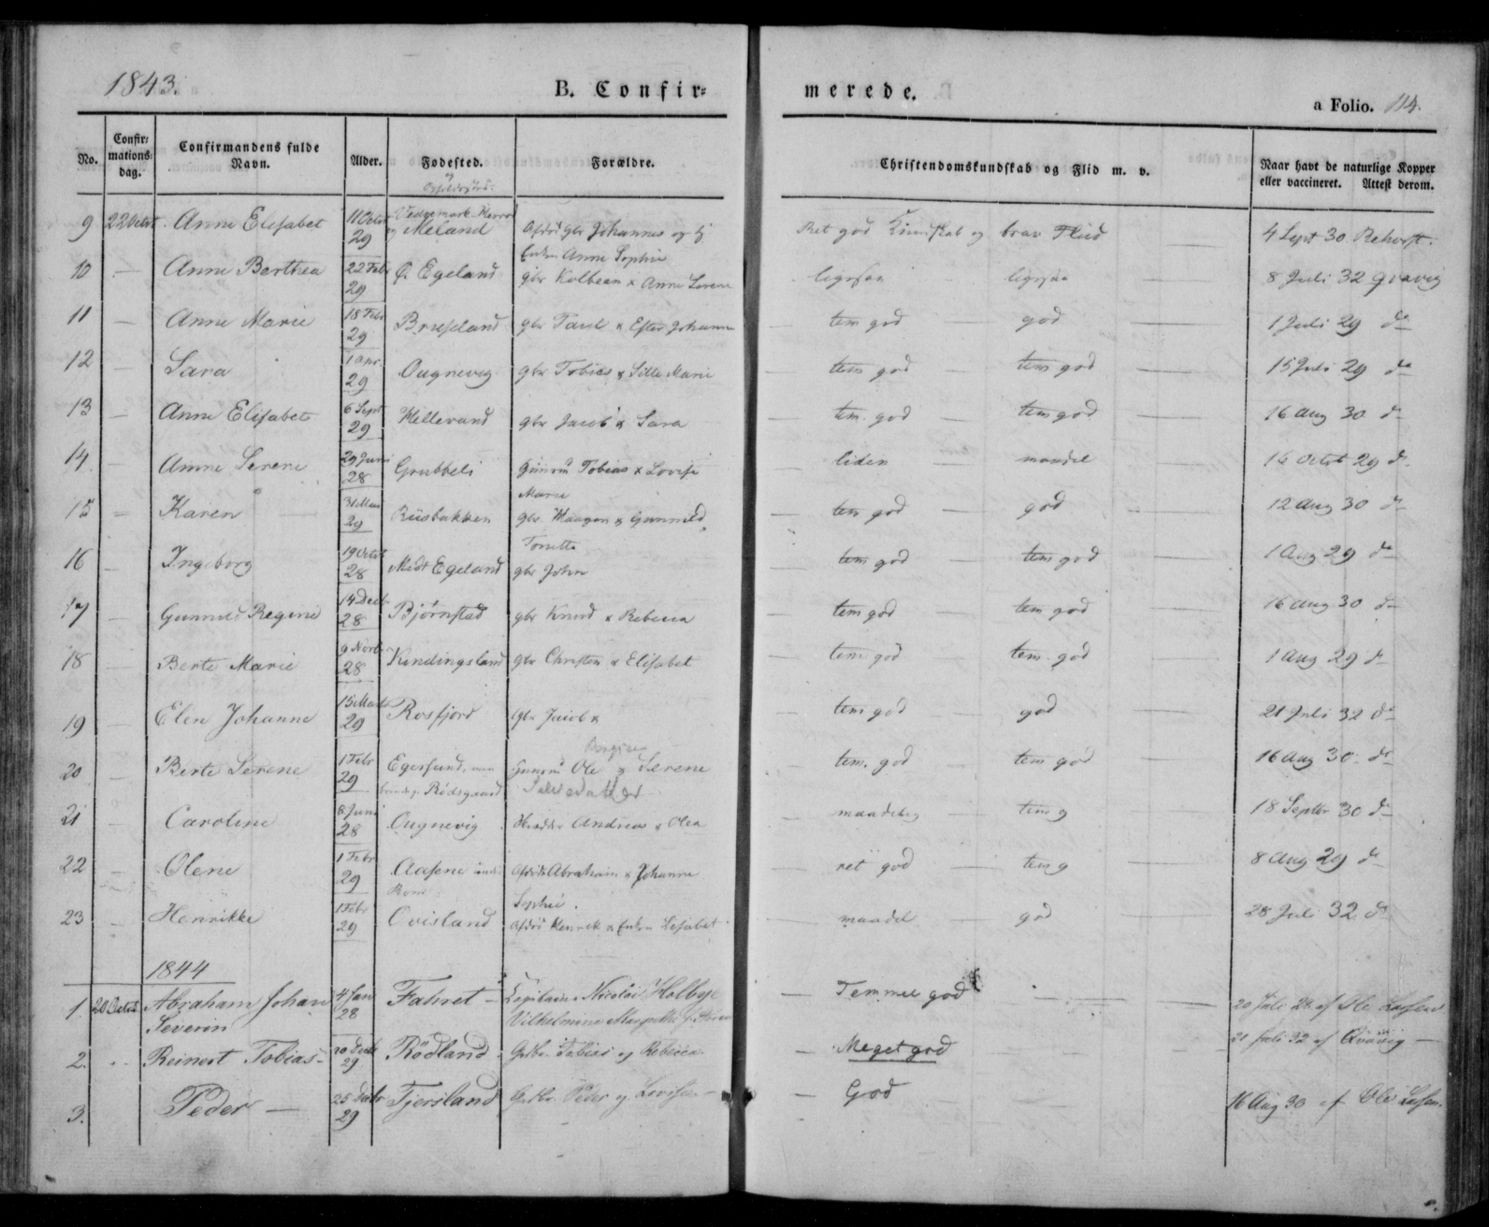 1843.
B. Confir=
merede.
a Folio. 114.
No. Confir=mations=dag. Confirmandens fulde Navn. Alder. Fødested. Forældre. Christendomskundskab og Flid m. v. Naar havt de naturlige Kopper eller vaccineret. Attest derom.
9 22 Octbr Anne Elisabet 11 Octbr 29 Meland Johannes og Anne Sophie Ret god Kundskab og brav Flid 4 Sept 30
10 Anne Berthea 22 Febr 29 Ø. Egeland gbr Kolbeen x Anne Serene ligesaa ligesaa 8 Juli 32 Qvavig
11 Anne Marie 18 Febr 29 Bruseland gbr x Ester Johanne tem god god 1 Juli 29 do
12 Sara 1 Apr. 29 Ougnevig gbr Tobias x Sille Marie tem god tem god 15 Juli 29 do
13 Anne Elisabet 6 Sept 29 Hellevand gbr Jacob x Sara tem. god tem god 16 Aug 30 do
14 Anne Serene 29 Juni 28 Grubbeli Tobias x Lovise Marie liden maadel 16 Octb 29 do
15 Karen 29 Riisbakken gbr Haagen x Gunnild Tonette tem god god 12 Aug 30 do
16 Ingeborg 19 Octbr 28 Midt Egeland gbr John tem god tem god 1 Aug 29 do
17 Gunnild Regine 14 Decb 28 Bjørnstad gbr Knud x Rebecca tem god tem god 16 Aug 30 do
18 Berte Marie 9 Novb 28 Kindingsland gbr Christen x Elisabet tem god tem. god 1 Aug 29 do
19 Elen Johanne 15 Marts 29 Rosfjord gbr Jacob x tem god god 21 Juli 32 do
20 Berte Serene 1 Febr 29 Egersund, Rødsgaard Ole og Serene tem. god tem god 16 Aug 30. do
21 Caroline 8 Juni 28 Ougnevig Andreas x Olea maadelig tem g 18 Septbr 30 do
22 Olene 1 Febr 29 Aasene Abraham x Johanne Sophie. ret god tem g 8 Aug 29 do
23 Henrikke 1 Febr 29 Qvisland Henrik x Lisabet maadel god 28 Juli 32 do
1844
1. 20 Octbr Abraham Johan Severin 4 Jan 28 Farret Nicolai Holbye Vilhelmine Temmel god 20 Juli
2. Reinert Tobias 29 Rødland Gbr. Tobias og Rebecca Meget god 21 Juli 32 af Qvavig
3. Peder 25 Decbr 29 Tjersland Peder og Lovise God 16 Aug 30 af Ole